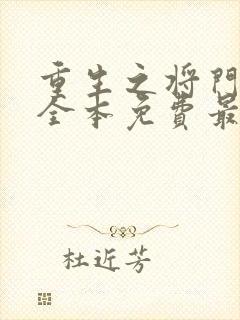 重生之将门
全本免费最
杜近芳